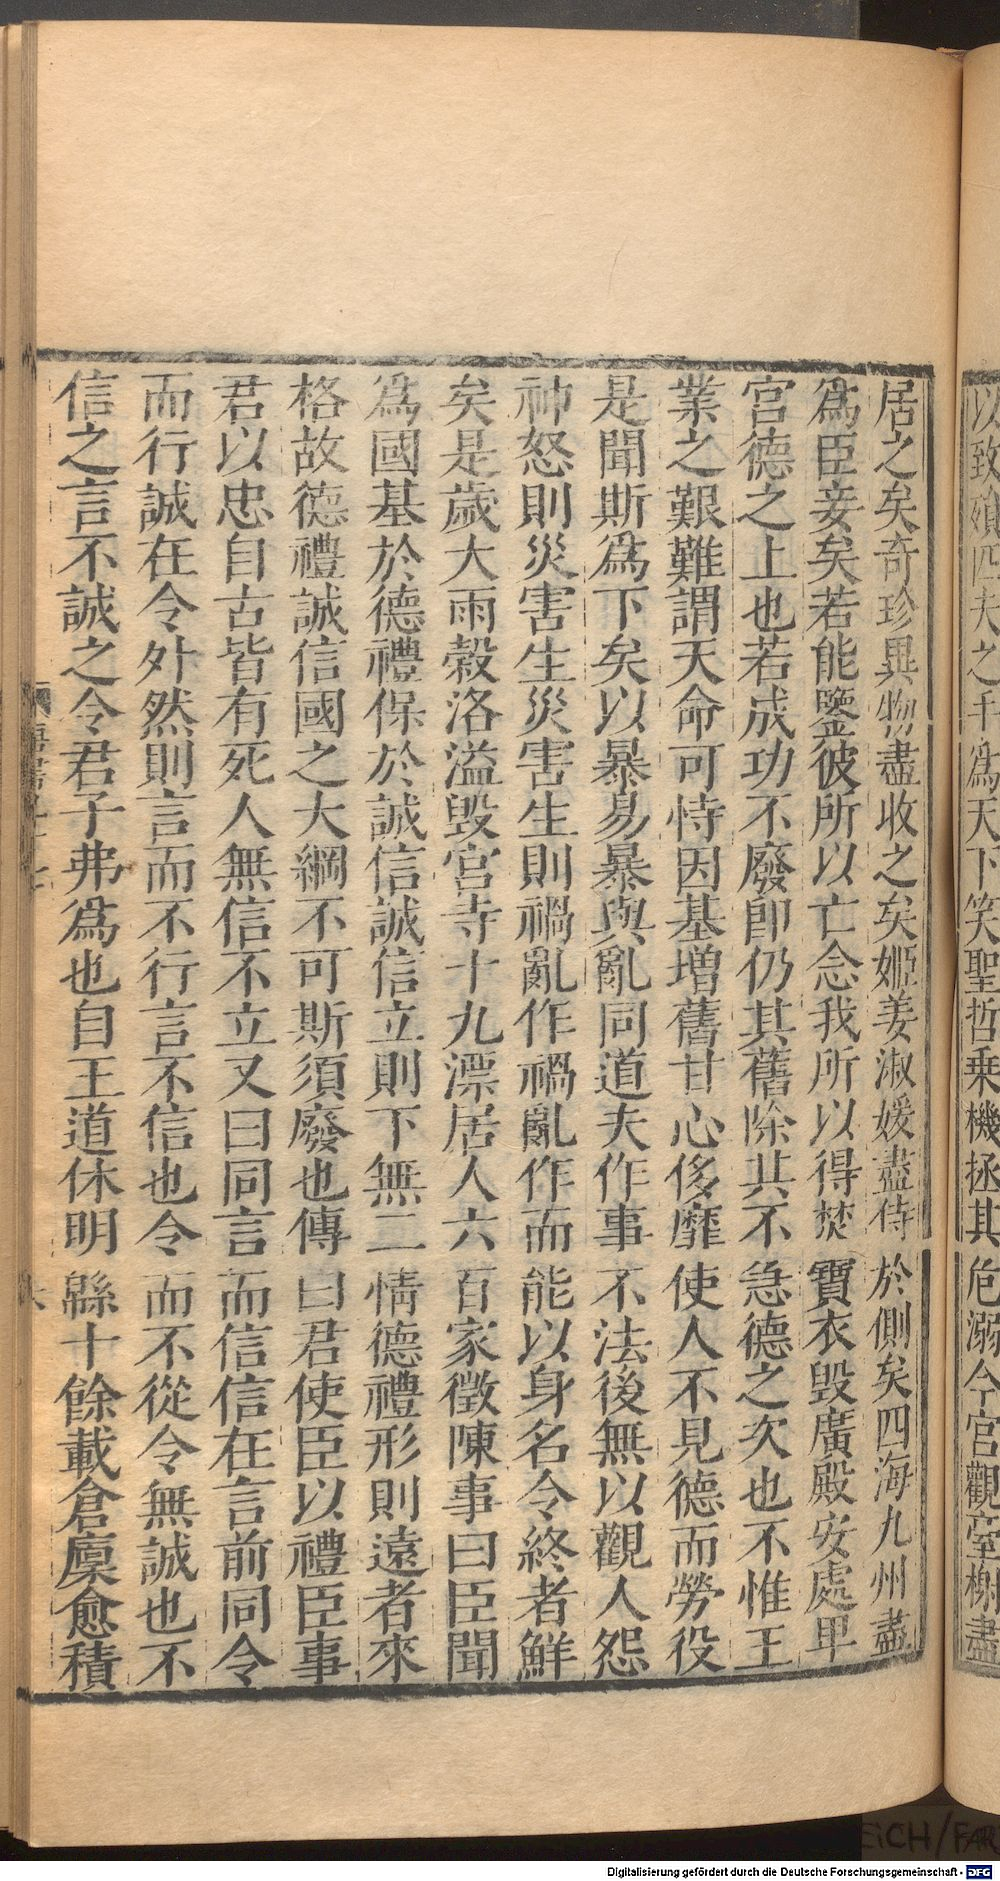 以致殞匹夫之手爲天下笑聖哲乗機拯其危溺今宫觀臺榭盡
居之矣奇珍異物盡收之矣姬姜淑媛盡侍於側矣四海九州盡
爲臣妾矣若能鑒彼所以亡念我所以得焚寶衣毁廣殿安處卑
宫德之上也若成功不廢卽仍其舊除其不急德之次也不惟王
業之艱難謂天命可恃因基增舊甘心侈靡使人不見德而勞役
是聞斯爲下矣以暴易暴與亂同道夫作事不法後無以觀人怨
神怒則災害生災害生則禍亂作禍亂作而能以身名令終者鮮
矣是歲大雨穀洛溢毁宫寺十九漂居人六百家徵陳事曰臣聞
爲國基於德禮保於誠信誠信立則下無二情德禮形則遠者來
格故德禮誠信國之大綱不可斯須廢也傳曰君使臣以禮臣事
君以忠自古皆有死人無信不立又曰同言而信信在言前同令
而行誠在令外然則言而不行言不信也令而不從令無誠也不
信之言不誠之令君子弗爲也自王道休明緜十餘載倉廩愈積
Digitalisierung gefördert durch die Deutsche Forschungsgemeinschaft - DFG